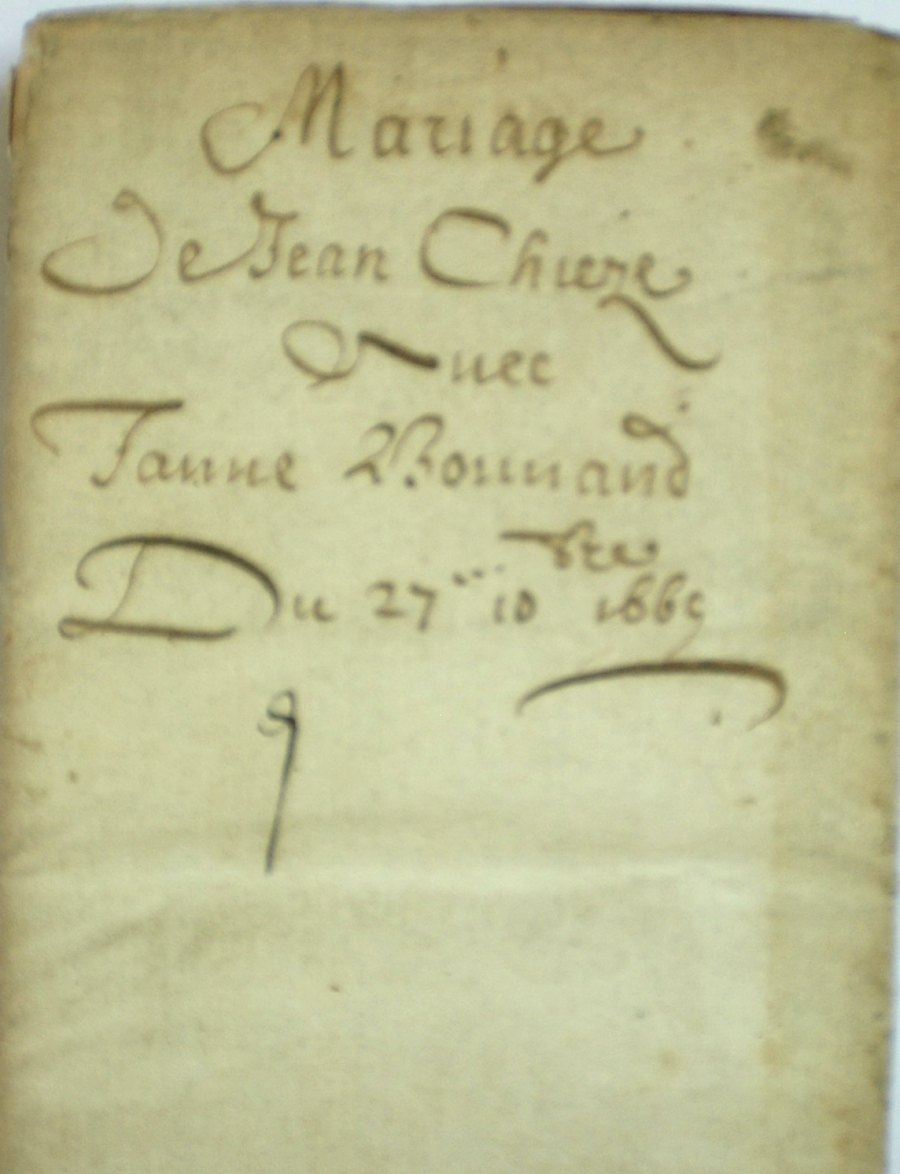 Mariage
De Jean Chieze
Auec
Janne Bonnand
Du 27 10bre 166